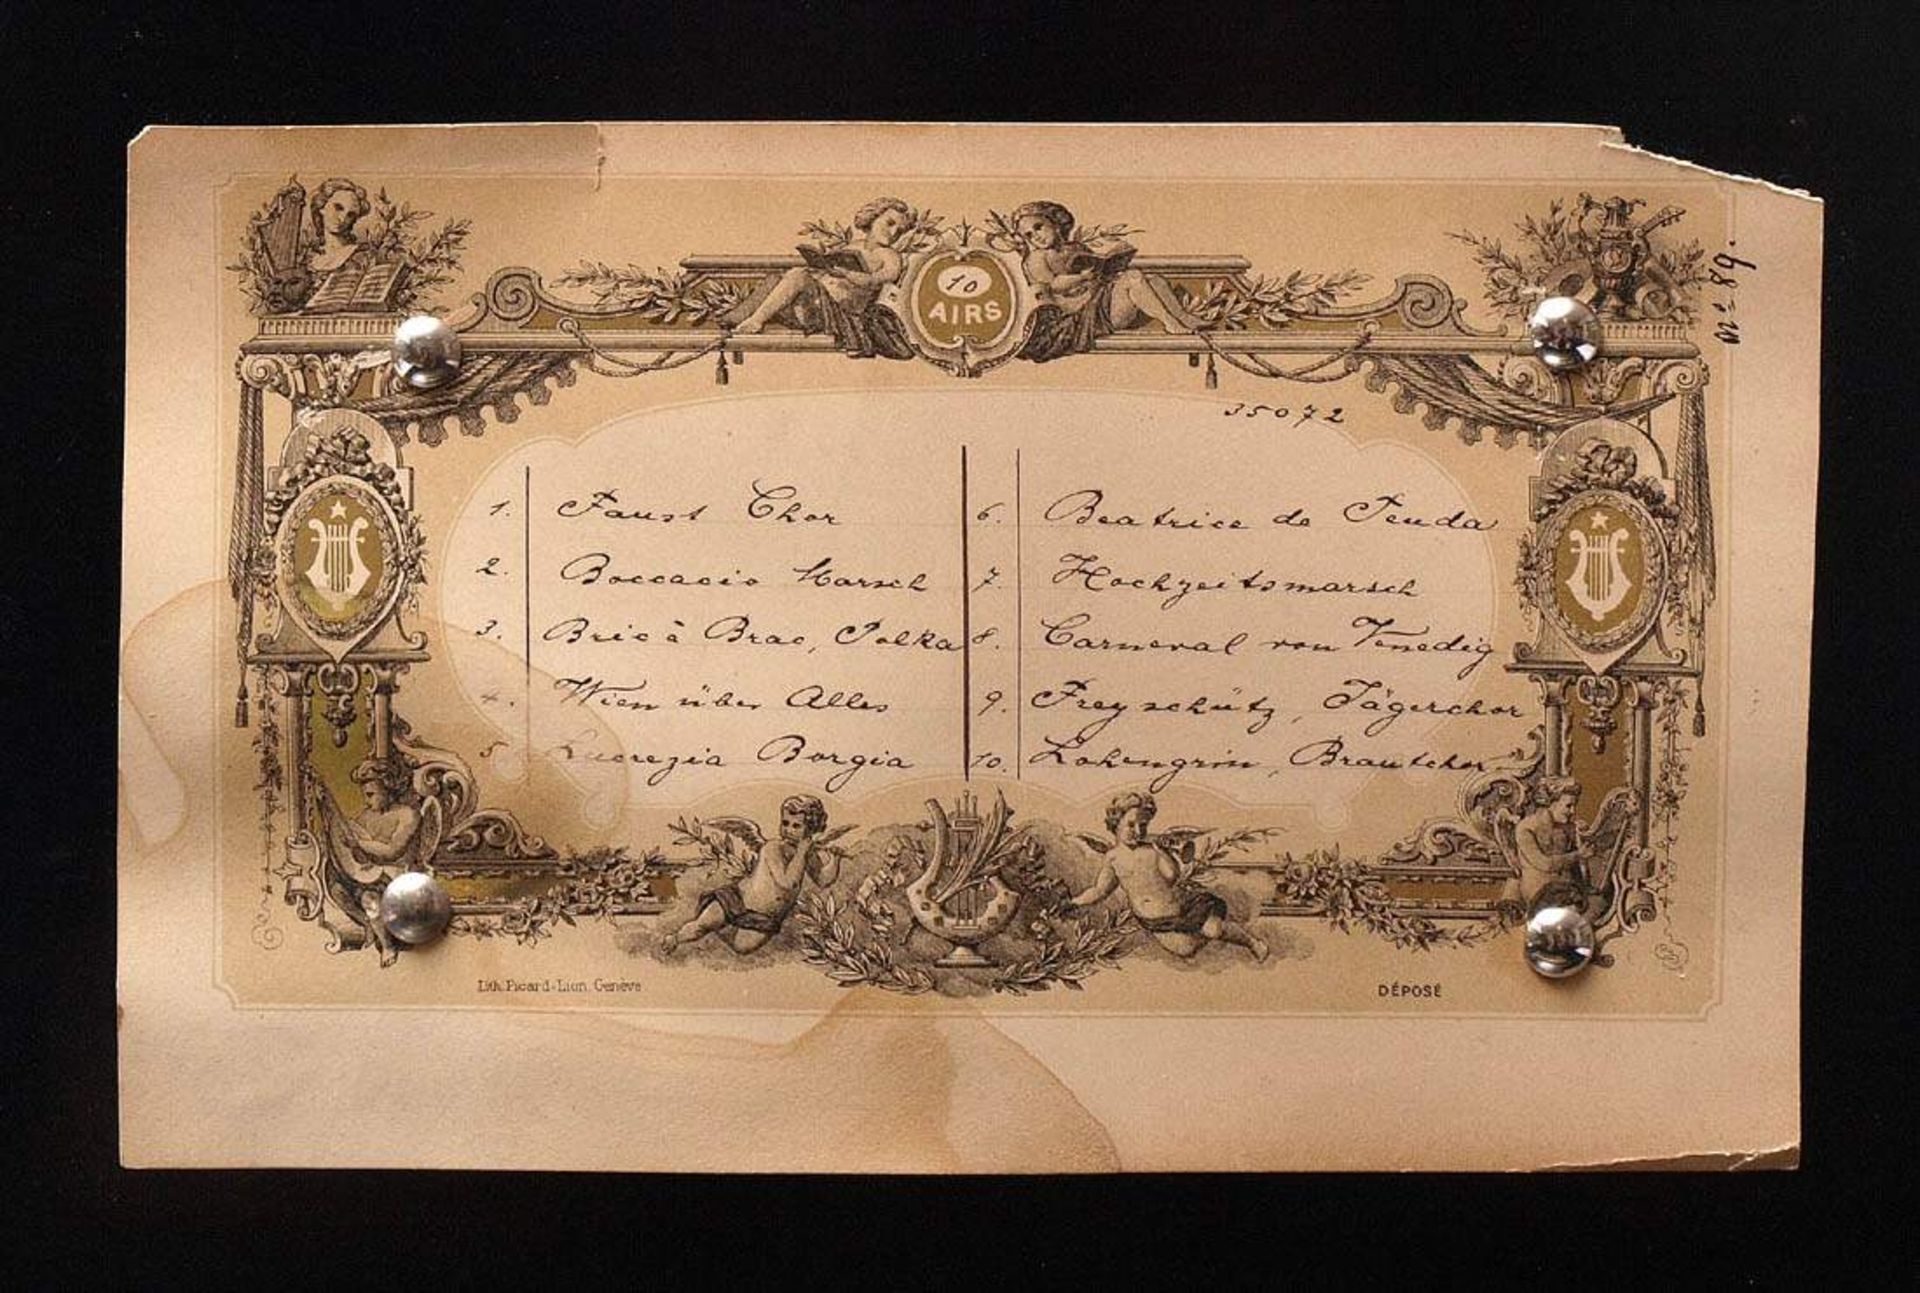 10
AIRS
No 89.
35072
1. Faust Chor
2. Boccacio Marsch
3. Bric à Brac, Polka
4. Wien über Alles
5. Lucrezia Borgia
6. Beatrice de Tenda
7. Hochzeitsmarsch
8. Carneval von Venedig
9. Freyschütz, Jägerchor
10. Lohengrin, Brautchor
Lith. Picard-Lion, Genève
DÉPOSÉ